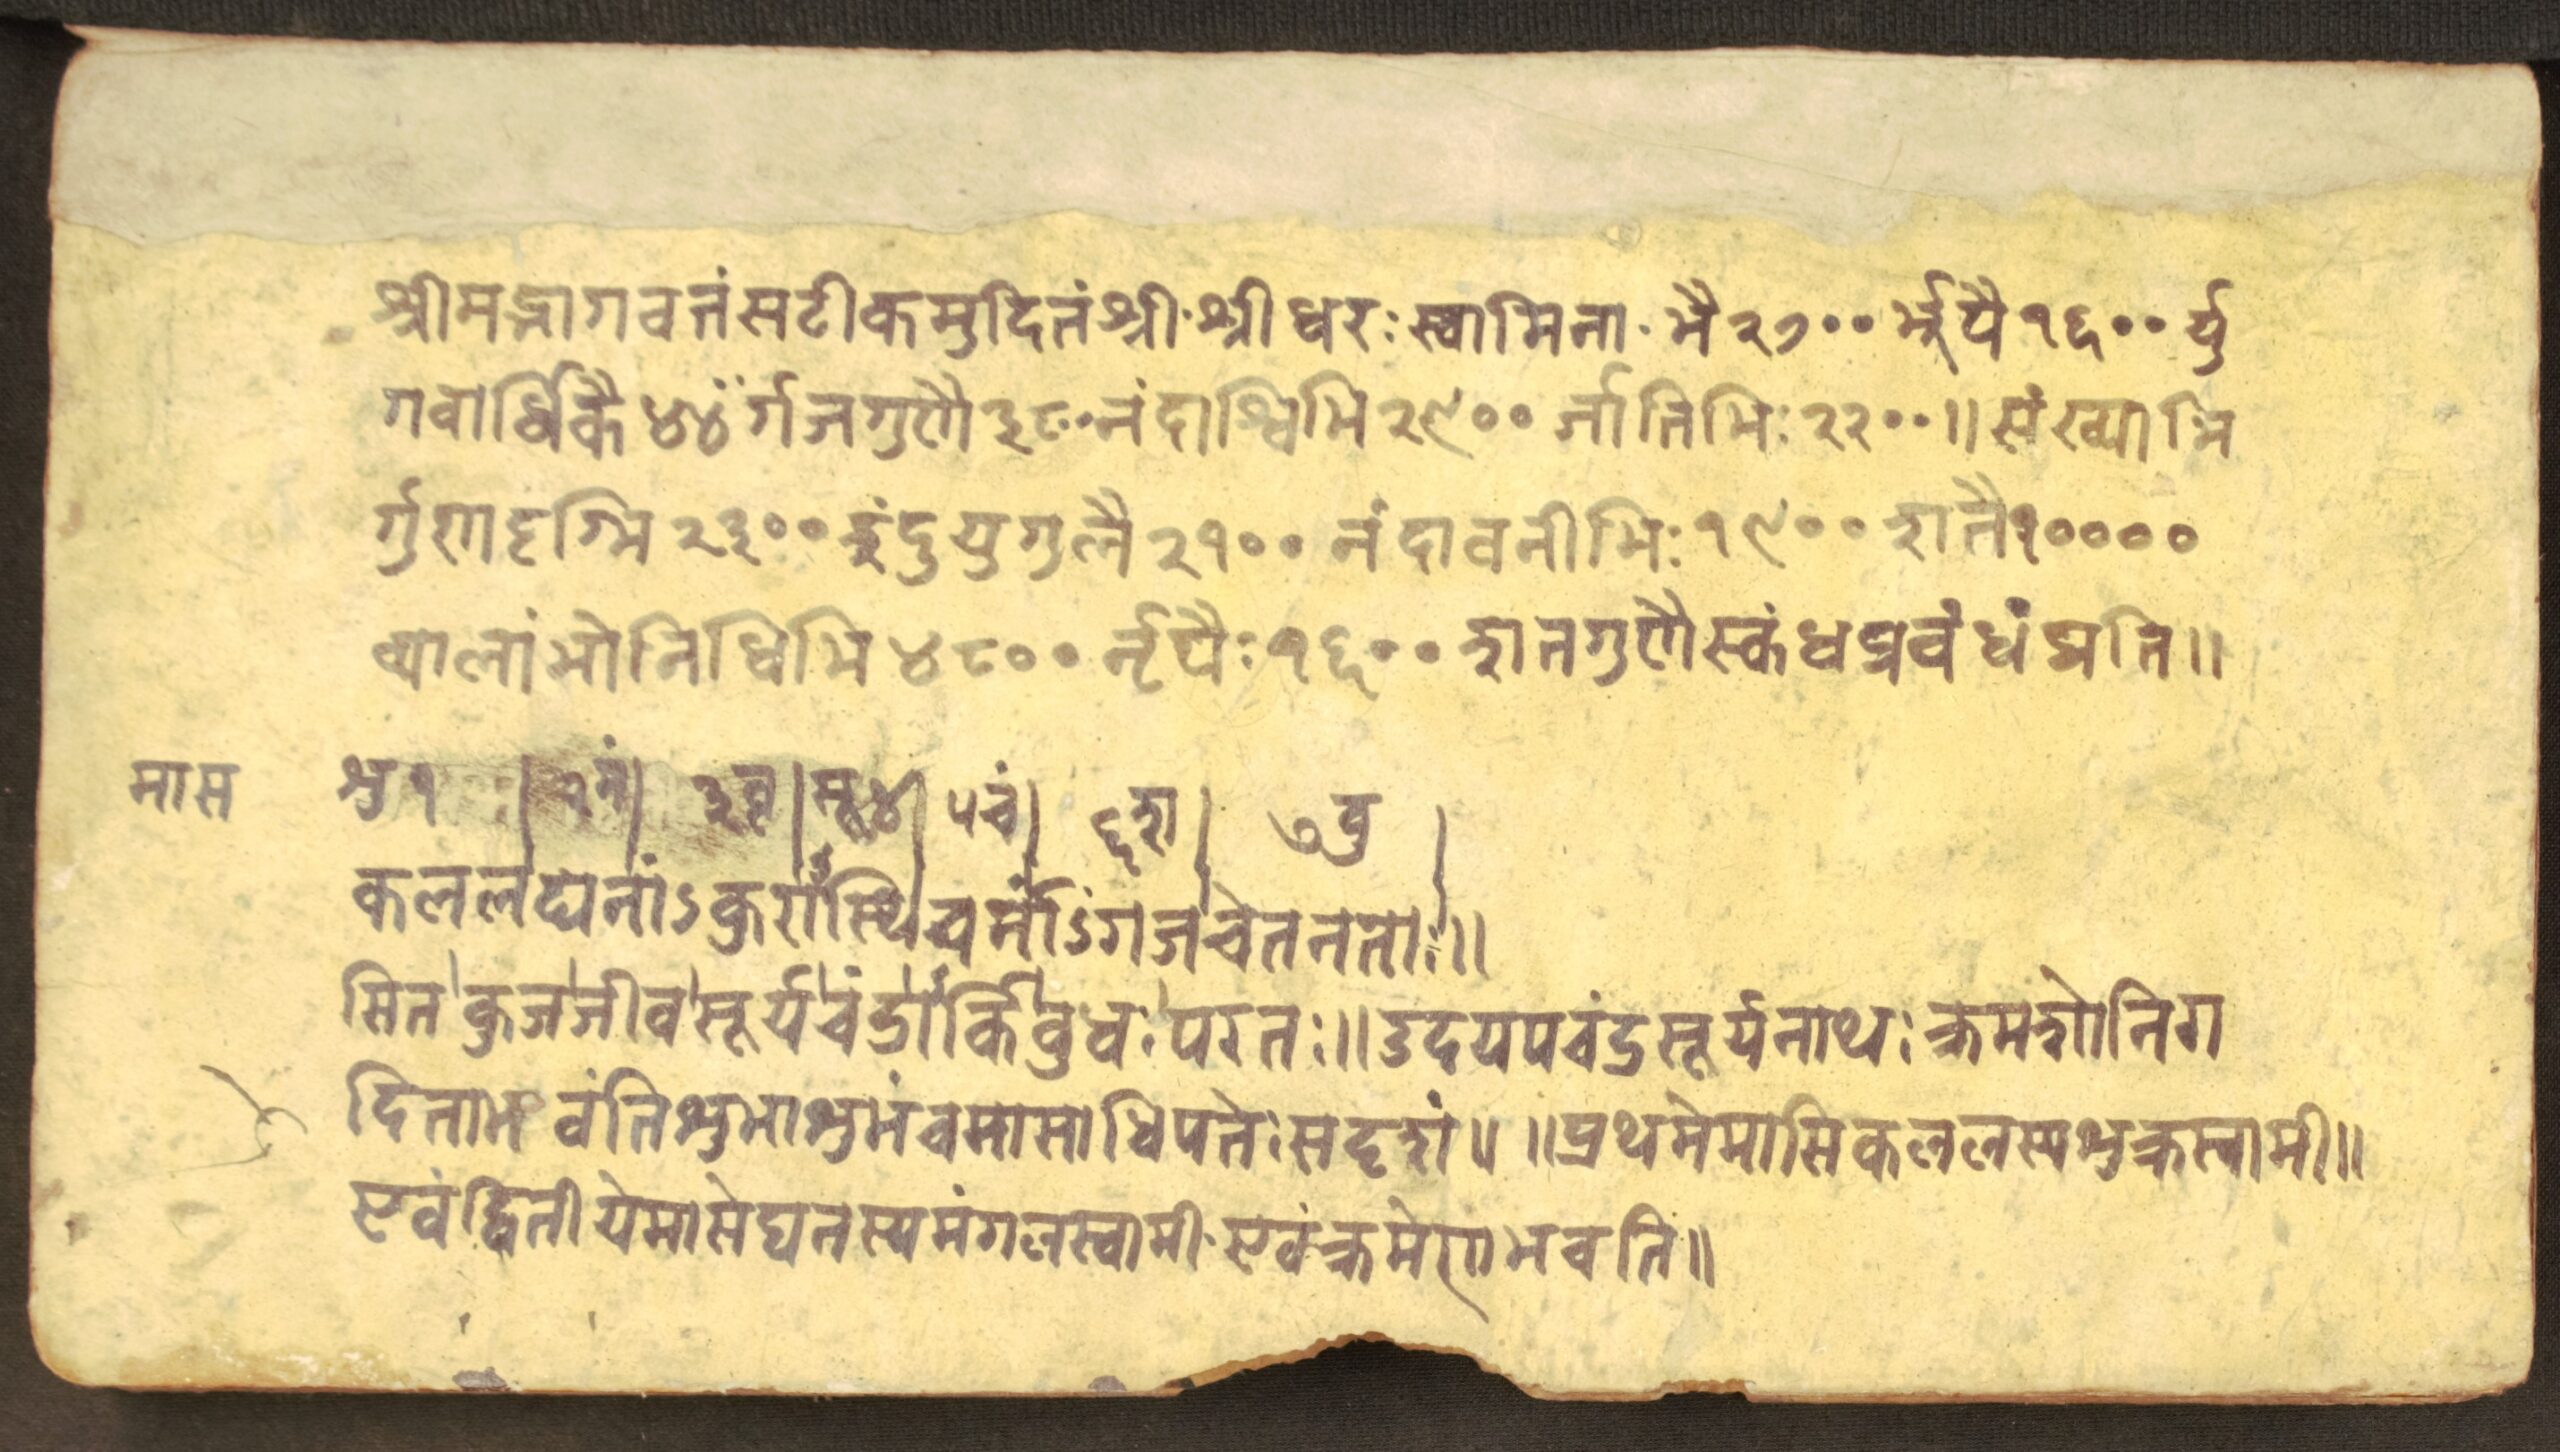 श्रीमद्भागवतंसटीकमुदितंश्री·श्रीधरःस्वामिना·भै२७००र्भूपै१६००र्यु
गवार्धिकै४४ंर्गजगुणै३८०नंदाश्विभि२९००र्जातिभिः२२००॥संख्याभि
र्गुणदृग्भि२३००इंदुयुगुलै२१००नंदावनीभिः१९००शतै१००००
व्यालांभोनिधिभि४८००र्नृपैः१६००शतगुणैस्कंधप्रबंधंप्रति॥
मास शु१ । २मं। ३बृ।सू४। ५चं। ६श। ७बु ।
कललघनांऽकुरास्थिचर्मांऽगजचेतनताः॥
सितकुजजीवसूर्यचंद्रार्किबुधःपरतः॥उदयपचंद्रसूर्यनाथःक्रमशोनिग
दिताभवंतिशुभाशुभंचमासाधिपतेःसदृशं॥ ॥प्रथमेमासिकललस्यशुक्रस्वामी॥
एवंद्वितीयेमासेघनस्यमंगलस्वामी·एवंक्रमेणभवति॥